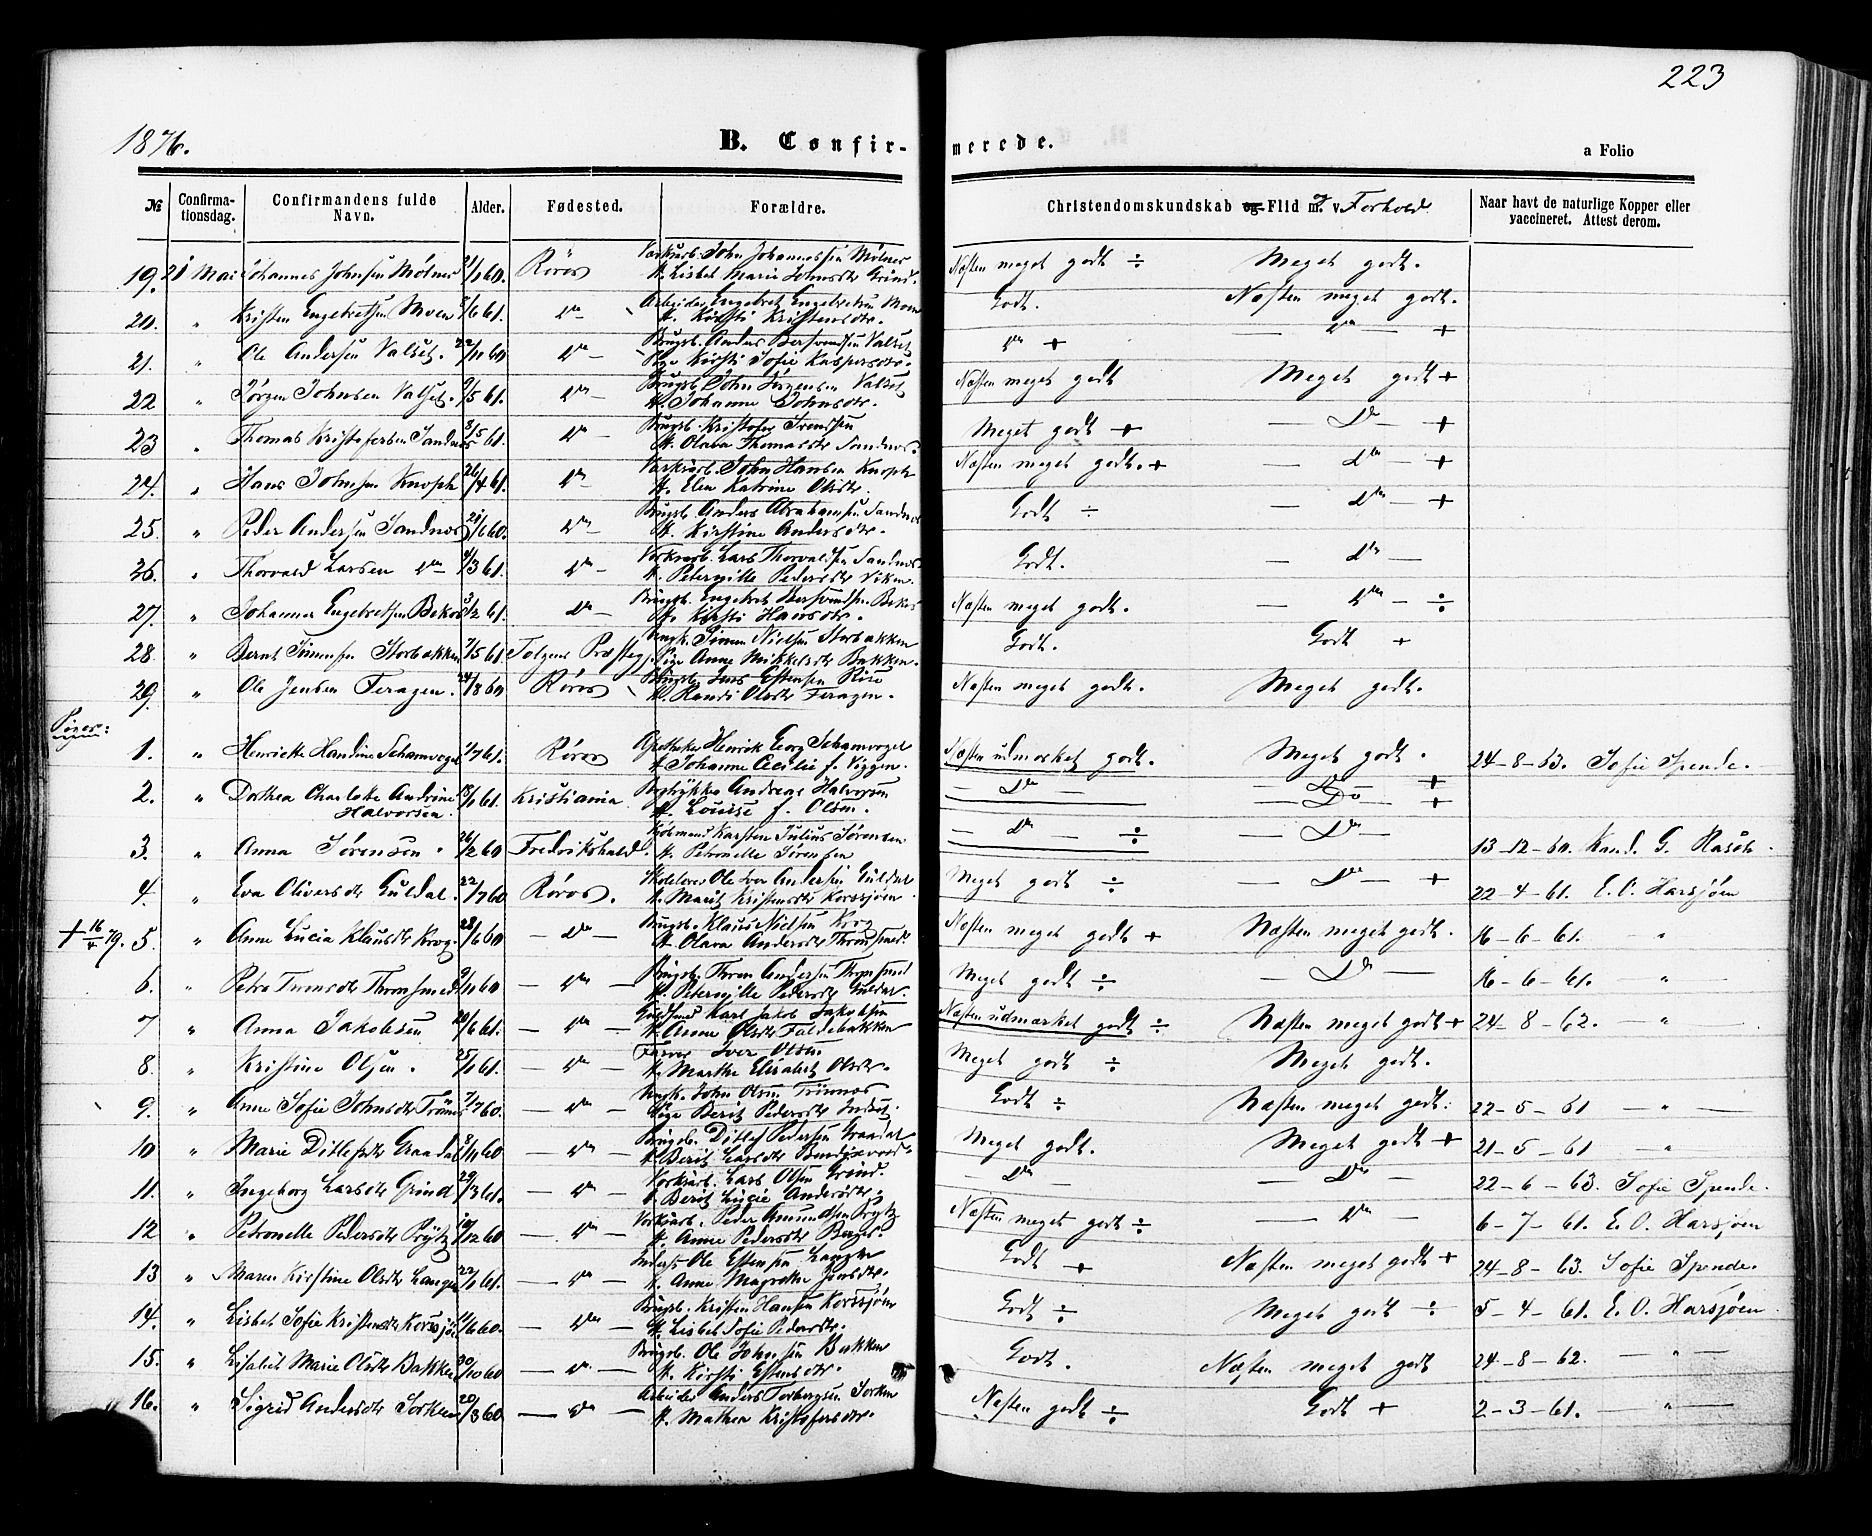 223
1876.
B. Confirmerede.
a Folio
№ Confirmationsdag. Confirmandens fulde Navn. Alder. Fødested. Forældre. Christendomskundskab og Flid m. v. og Forhold Naar havt de naturlige Kopper eller vaccineret. Attest derom.
19. 21 Mai Johannes Johnsen Mølner 2/1 60. Röros Vaskarb. John Johannessen Mölner
H. Lisbet Marie Johnsdtr Grind. Næsten meget godt ÷ Meget godt.
20. " Kristen Engebretsen Moen 8/6 61. do Arbeider Engebret Engebretsen Moen
H. Kirsti Kristensdtr. Godt. Næsten meget godt.
21. " Ole Andersen Valset. 22/11 60 do Brugsb. Anders Bersvendsen Valset
Pige Kirsti Sofie Kaspersdtr. do + — do — +
22 " Jörgen Johnsen Valset. 9/5 61. do Brugsb. John Jörgensen Valset
H. Johanne Johnsdtr. Næsten meget godt Meget godt +
23 " Thomas Kristofersen Sandnes 3/5 61. do Brugsb. Kristofer Svendsen
H. Olava Thomasdtr Sandnes. Meget godt + — Do — +
24. " Hans Johnsen Knoph 26/4 61. do Vaskarb. John Hansen Knoph
H. Elen Katrine Olsdtr. Næsten meget godt. + — do — +
25. " Peder Andersen Sandnes 21/6 60. do Brugsb. Anders Abrahamsen Sandnes
H. Kirstine Andersdtr. Godt ÷ — do — +
26. " Thorvald Larsen do 4/3 61. do Vaskarb. Lars Thorvaldsen Sandnes
H. Peternille Pedersdtr Viken. Godt. — do —
27. " Johannes Engebretsen Bekos 3/2 61. do Brugsb. Engebret Bersvendsen Bekos
H. Kirsti Hansdtr. Næsten meget godt. — do — ÷
28. " Bernt Simensen Storbakken 7/5 61. Tolgens Præstegj. Ungk. Simen Nielsen Storbakken
Pige Anne Mikkelsdtr Bakken. Godt. Godt +
29. " Ole Jensen Feragen. 24/8 60 Röros Brugsb. Jens Estensen Riise
H. Randi Olsdtr Feragen. Næsten meget godt. Meget godt.
Piger:
1. " Henriette Handine Schamvogel 1/7 61. Röros Apotheker Henrik Georg Schamvogel
H. Johanne Cecilie f. Viggen. Næsten udmærket godt. Meget godt. 24-8-63. Sofie Spende.
2. " Dorthea Charlotte Andrine Halvorsen 18/1 61. Kristiania Andreas Halvorsen
H. Louise f. Olsen. — Do — — Do — +
3. " Anna Sørensen. 26/2 60 Fredrikshald. Kjøbmand Karsten Julius Sørensen
H. Petronelle Sørensen — Do — ÷ — Do — 13-12-60. Kand. G. Rasch.
4. " Eva Oliversdtr Guldal. 22/7 60 Röros. Skolelærer Ole Iver Andersen Guldal
H. Marit Kristensdtr Korssjøen. Meget godt ÷ — Do — + 22-4-61. E. O. Harsjøen
+ 16/4 79. 5. " Anne Lucia Klausdtr Krog. 28/6 60 — do — Brugsb. Klaus Nielsen Krog
H. Olava Andersdtr Thronsmed. Næsten meget godt + Næsten meget godt. 16-6-61. — "
6. " Petra Tronsdtr Thronsmed 9/11 60 — do — Brugsb. Thron Andersen Thronsmed
H. Peternille Pedersdtr Guldal. Meget godt ÷ — Do — 16-6-61. — "
7 " Anna Jakobsen 20/6 61. — do — Guldsmed Karl Jakob Jakobsen
H. Anne Olsdtr Faldebakken Næsten udmærket godt ÷ Næsten meget godt + 24-8-62. — " —
8. " Kristine Olsen. 25/1 61. — do — Farver Iver Olsen
H. Marthe Elisabet Olsdtr. Meget godt ÷ Meget godt.
9. " Anne Sofie Johnsdtr Trönnes 7/7 60. — do — Ungk. John Olsen Trönnes
Pige Berit Pedersdtr Indset. Godt ÷ Næsten meget godt. 22-5-61 — " —
10 " Marie Ditlefsdtr Graadal 8/11 60 — do — Brugsb. Ditlef Pedersen Graadal
H. Berit Larsdtr Meget godt. Meget godt + 21-5-61 — "
11. " Ingeborg Larsdtr Grind 29/3 61. — do — Vaskarb. Lars Olsen Grind.
H. Berit Lucie Andersdtr. — Do — — Do — 22-6-63. Sofie Spende.
12 " Petronelle Pedersdtr Prÿtz 10/12 60 — do — Vaskarb. Peder Amundsen Prÿtz
H. Anne Pedersdtr Berget. Næsten meget godt ÷ — do — 6-7-61. E. O. Harsjøen
13 " Maren Kirstine Olsdtr Langen 22/1 61. — do — Inderst Ole Estensen Langen
H. Anne Magrethe Jensdtr. Godt + Næsten meget godt + 24-8-63. Sofie Spende.
14. " Lisbet Sofie Kristensdtr Korssjøen 11/6 60. — do — Brugsb. Kristen Hansen Korssjøen
H. Lisbet Sofie Pedersdtr. Godt ÷ Meget godt ÷ 5-4-61. E. O. Harsjøen
15. " Lisabet Marie Olsdtr Bakken 30/10 60 — do — Brugsb. Ole Johnsen Bakken
H. Kirsti Estensdtr. Godt. Næsten meget godt 24-8-62. — " —
16. " Sigrid Andersdtr Sorken 20/3 60 — do — Arbeider Anders Torbergsen Sorken
H. Mathea Kristofersdtr. Næsten godt ÷ Godt + 2-3-61. — " —